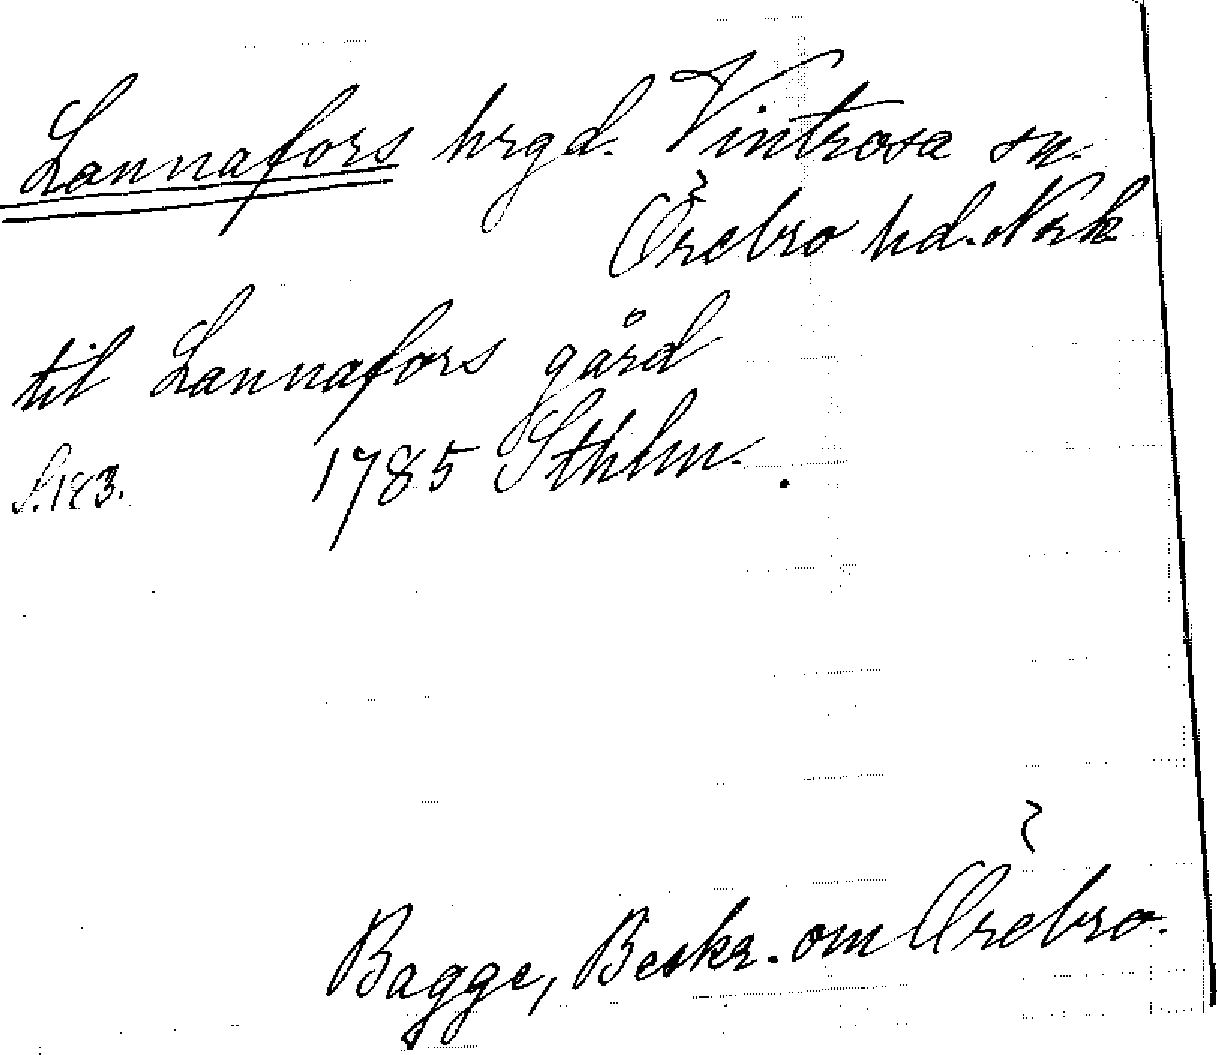 Lannafors hrgd. Vintrosa sn.
Örebro hd. Nrk
til Lannafors gård
S. 183. 1785 Sthlm.
Bagge, Beskr. om Örebro.